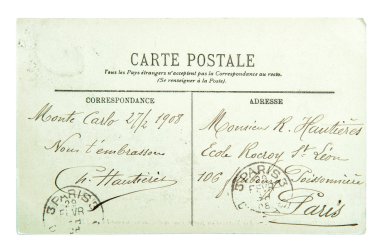 CARTE POSTALE
Tous les Pays étrangers n'acceptent pas la Correspondance au recto.
(Se renseigner à la Poste)
CORRESPONDANCE
Monte Carlo 27/2 1908
Nous t'embrassons
Ch. Hautières
ADRESSE
Monsieur R. Hautières
Ecole Rocroy St Léon
106 Poissonnière
Paris
PARIS 3
28
FEVR
PARIS 3